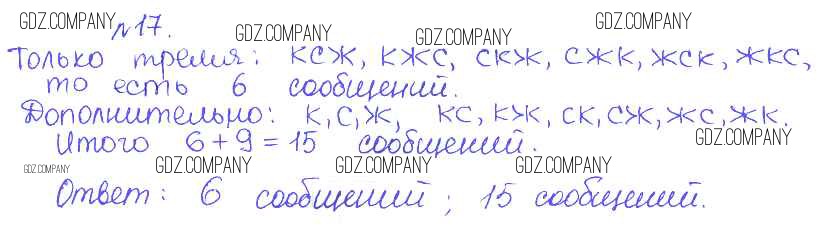 GDZ.COMPANY GDZ.COMPANY
№17. GDZ.COMPANY GDZ.COMPANY
Только тремя: КСЖ, КЖС, СКЖ, СЖК, ЖСК, ЖКС,
то есть 6 сообщений.
Дополнительно: К, С, Ж, КС, КЖ, СК, СЖ, ЖС, ЖК.
Итого 6+9=15 сообщений. GDZ.COMPANY
GDZ.COMPANY GDZ.COMPANY GDZ.COMPANY GDZ.COMPANY
Ответ: 6 сообщений; 15 сообщений.